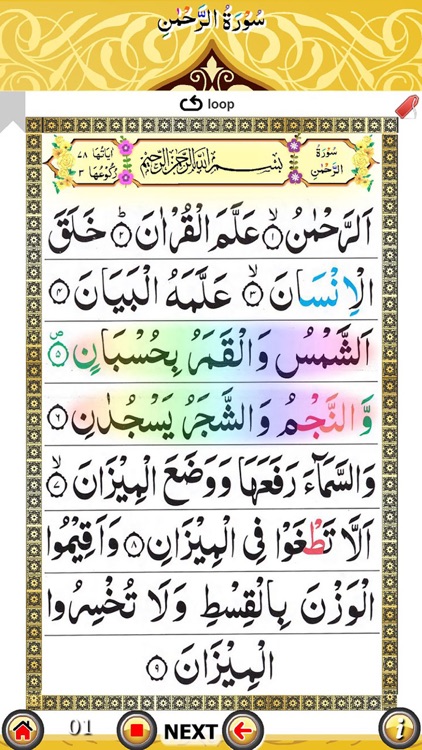 سُوْرَةُ الرَّحْمٰنِ
loop
سُوْرَةُ الرَّحْمٰنِ
بِسْمِ اللهِ الرَّحْمٰنِ الرَّحِيْمِ
اٰيَاتُهَا ٧٨
رُكُوْعُهَا ٣
اَلرَّحْمٰنُ ۙ‏﴿١﴾ عَلَّمَ الْقُرْاٰنَ ؕ‏﴿٢﴾ خَلَقَ
الْاِنْسَانَ ۙ‏﴿٣﴾ عَلَّمَهُ الْبَيَانَ ﴿٤﴾
اَلشَّمْسُ وَالْقَمَرُ بِحُسْبَانٍ ۪‏﴿٥﴾
وَّالنَّجْمُ وَالشَّجَرُ يَسْجُدٰنِ ﴿٦﴾
وَالسَّمَآءَ رَفَعَهَا وَوَضَعَ الْمِيْزَانَ ۙ‏﴿٧﴾
اَلَّا تَطْغَوْا فِى الْمِيْزَانِ ﴿٨﴾ وَاَقِيْمُوا
الْوَزْنَ بِالْقِسْطِ وَلَا تُخْسِرُوا
الْمِيْزَانَ ﴿٩﴾
01
NEXT
i